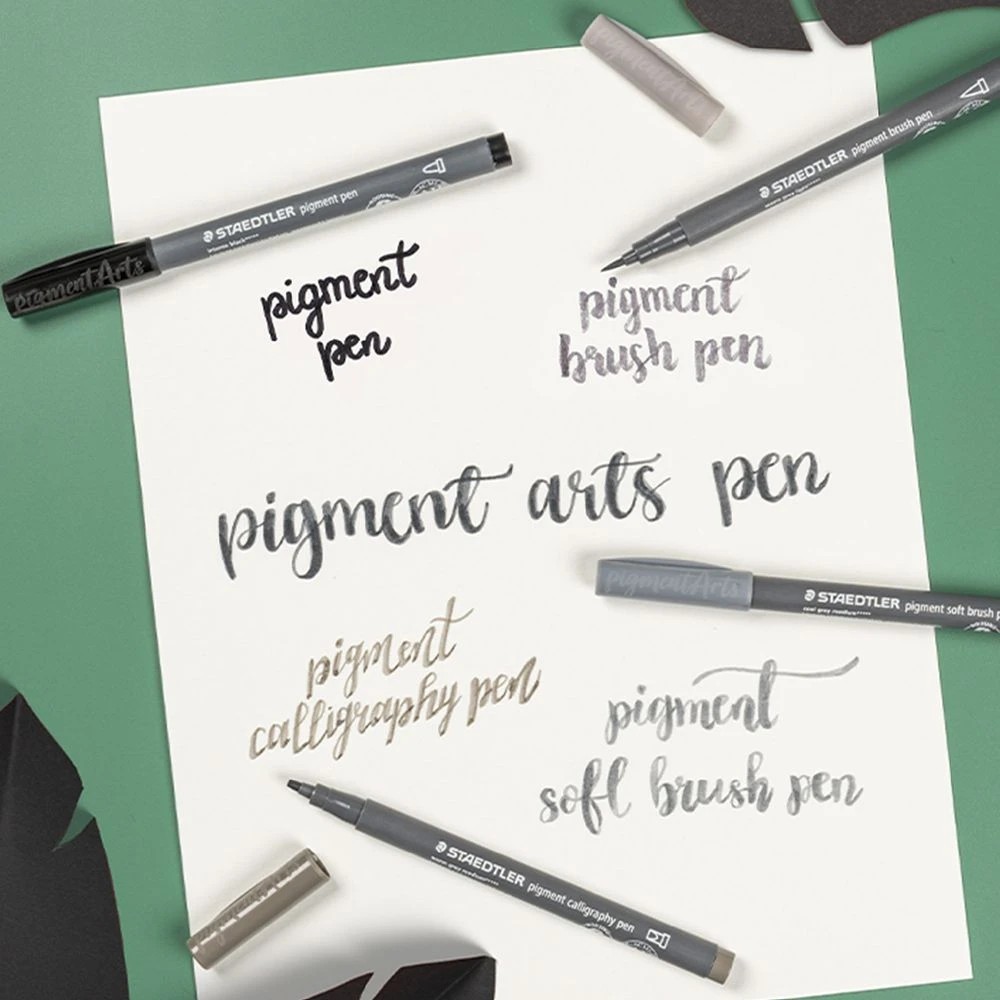 pigmentArts
STAEDTLER pigment brush pen
STAEDTLER pigment pen
pigmentArts
pigment
pen
pigment
brush pen
pigment arts pen
pigmentArts
STAEDTLER pigment soft brush p
cool grey medium
pigment
calligraphy pen
pigment
soft brush pen
STAEDTLER pigment calligraphy pen
warm grey medium
pigmentArts